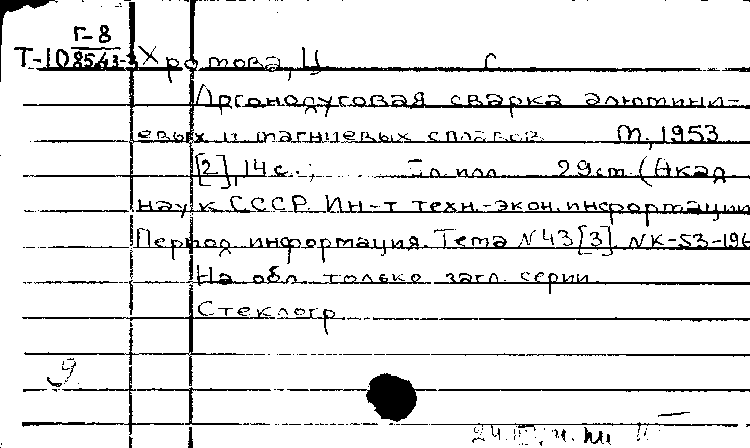 Г-8
Т-10 8543-3 Хромова, Ц С
Аргонодуговая сварка алюмини-
евых и магниевых сплавов М, 1953
[2], 14 с.; илл 29 см (Акад
наук СССР Ин-т техн.-экон. информации
Период информация. Тема N 43 [3] NК-53-196
На обл только загл серии
Стеклогр
9